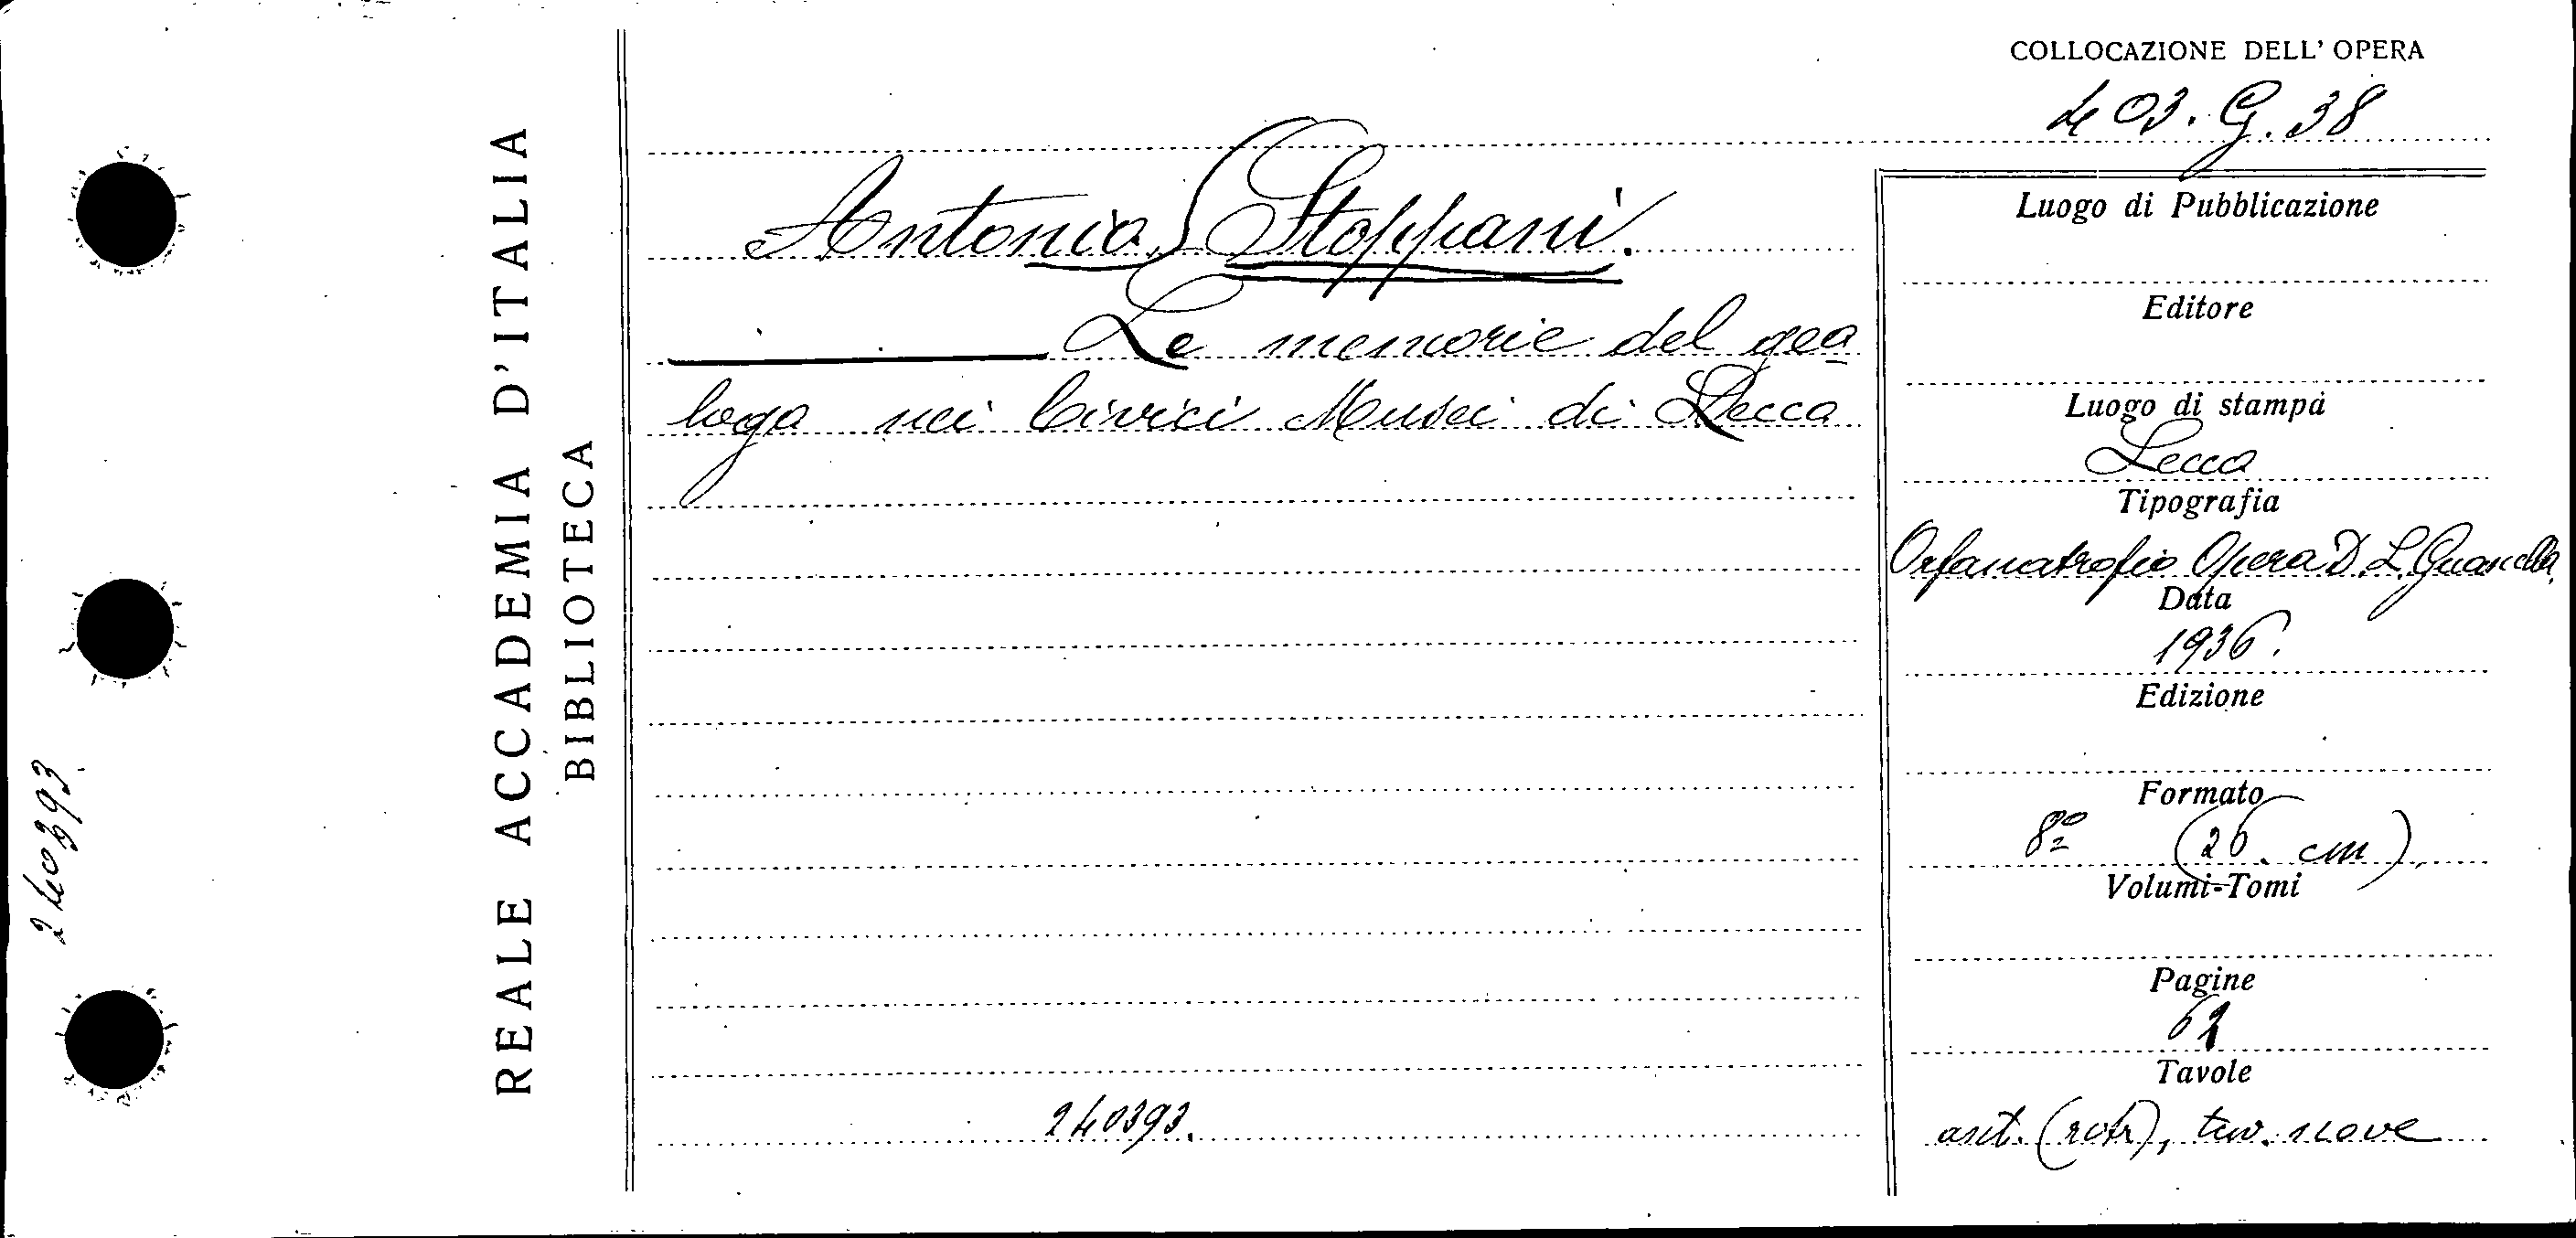 COLLOCAZIONE DELL' OPERA
403. G. 38
REALE ACCADEMIA D'ITALIA
BIBLIOTECA
Antonio Stoppani.
Le memorie del geo
logo nei Civici Musei di Lecco
240393.
Luogo di Pubblicazione
Editore
Luogo di stampa
Lecco
Tipografia
Orfanotrofio Opera D. L. Guanella
Data
1936.
Edizione
Formato
8º (26. cm)
Volumi-Tomi
Pagine
Tavole
nove
240393.